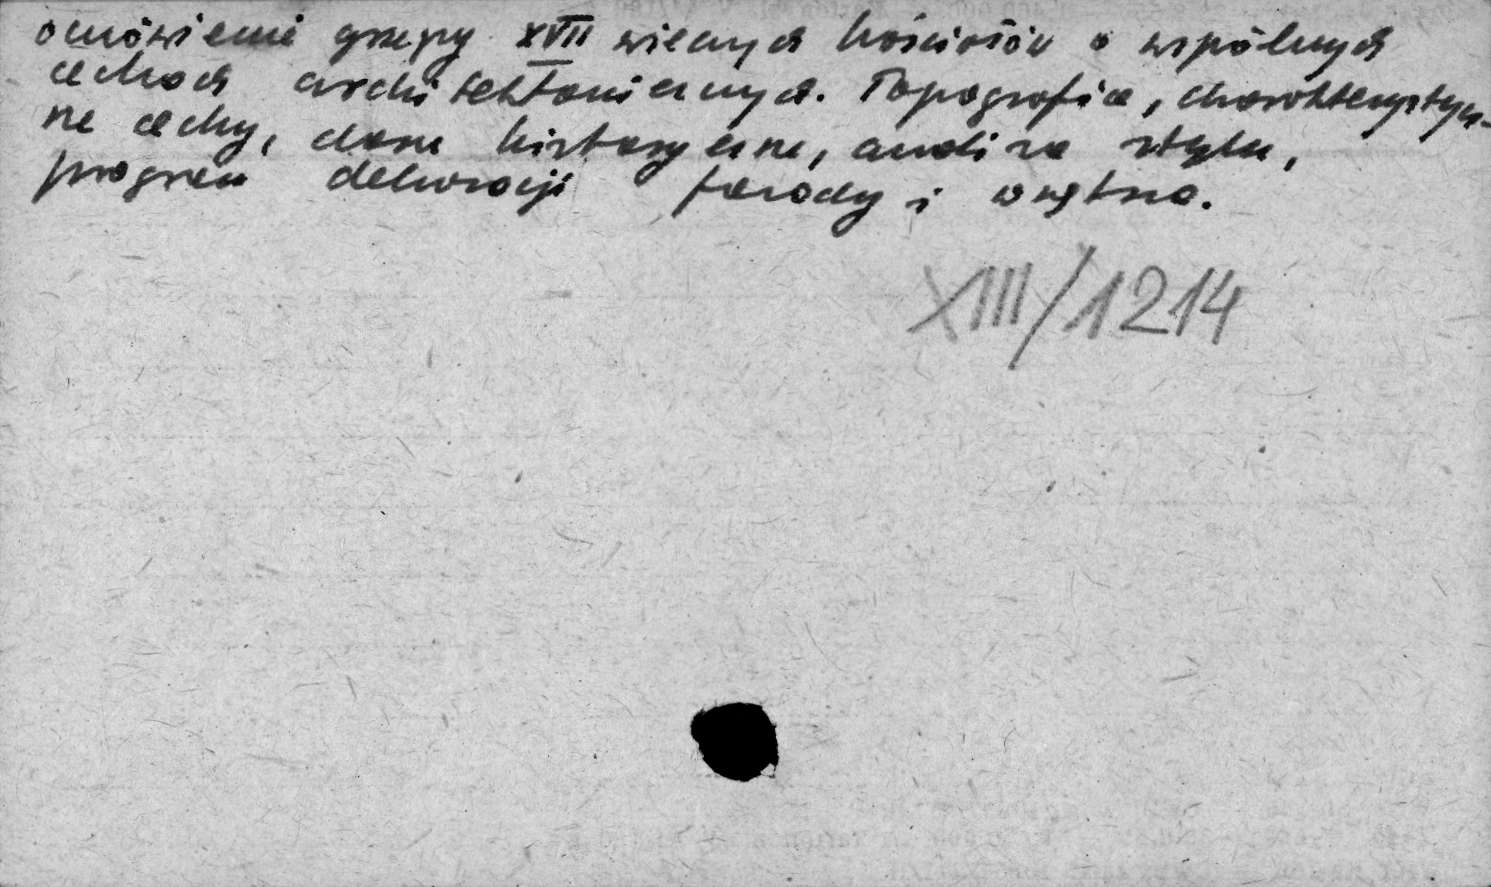 omówienie grupy XVII wiecznych kościołów o wspólnych
cechach architektonicznych. Topografia, charakterystycz-
ne cechy, dane historyczne, analiza stylu,
program dekoracji fasady i wnętrza.
XIII/1214